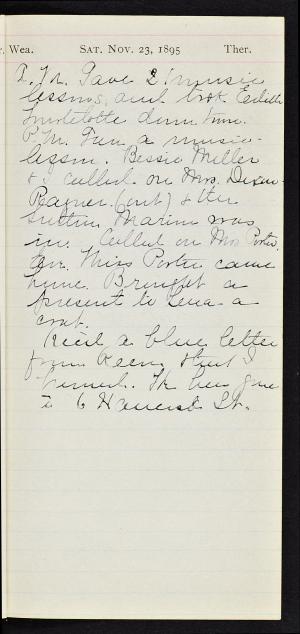 Wea. SAT. NOV. 23, 1895 Ther.
A.M. Gave 2 music
lessons and took
down town.
P.M. Gave a music
lesson. Bessie Miller
& I called on Mrs.
(out) & the
Marion was
in. Called on Mrs Porter,
Miss Porter came
home. Brought a
present to Lena a
coat.
Rec'd a blue letter
from that I
burned. He has gone
to 6 Hancock St.